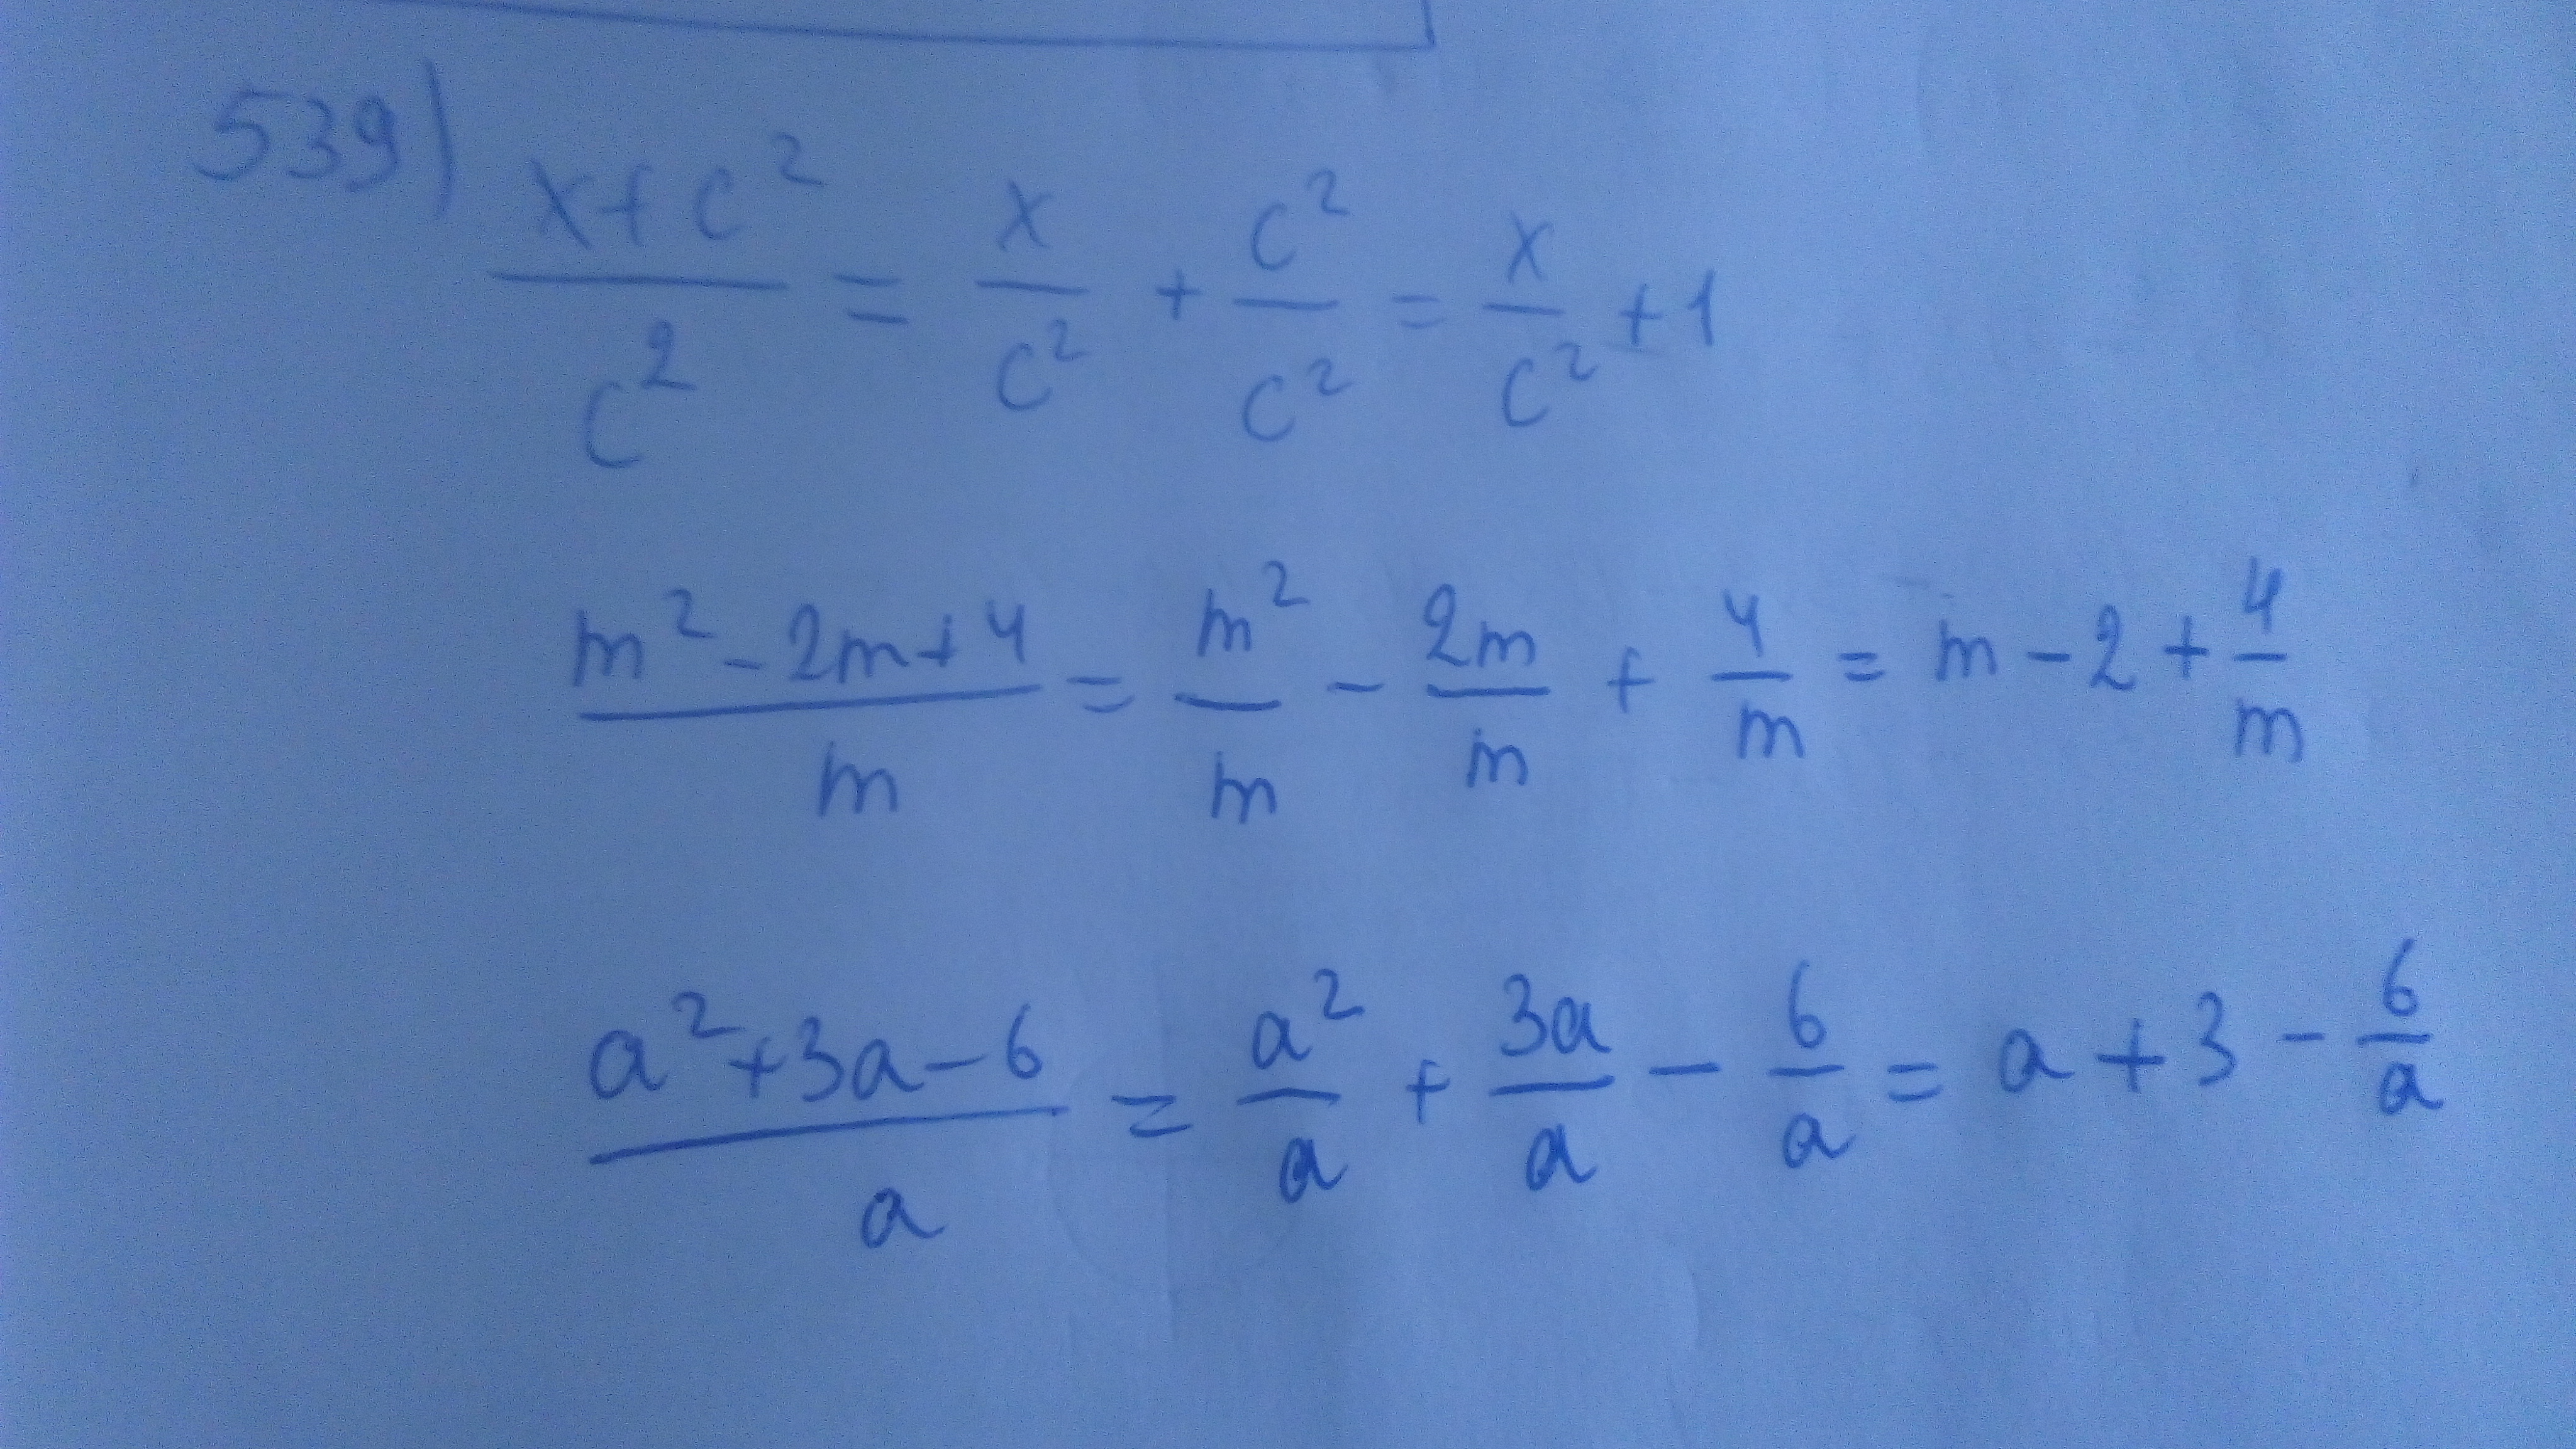 539) \frac{x+c^2}{c^2} = \frac{x}{c^2} + \frac{c^2}{c^2} = \frac{x}{c^2} + 1
\frac{m^2-2m+4}{m} = \frac{m^2}{m} - \frac{2m}{m} + \frac{4}{m} = m - 2 + \frac{4}{m}
\frac{a^2+3a-6}{a} = \frac{a^2}{a} + \frac{3a}{a} - \frac{6}{a} = a + 3 - \frac{6}{a}